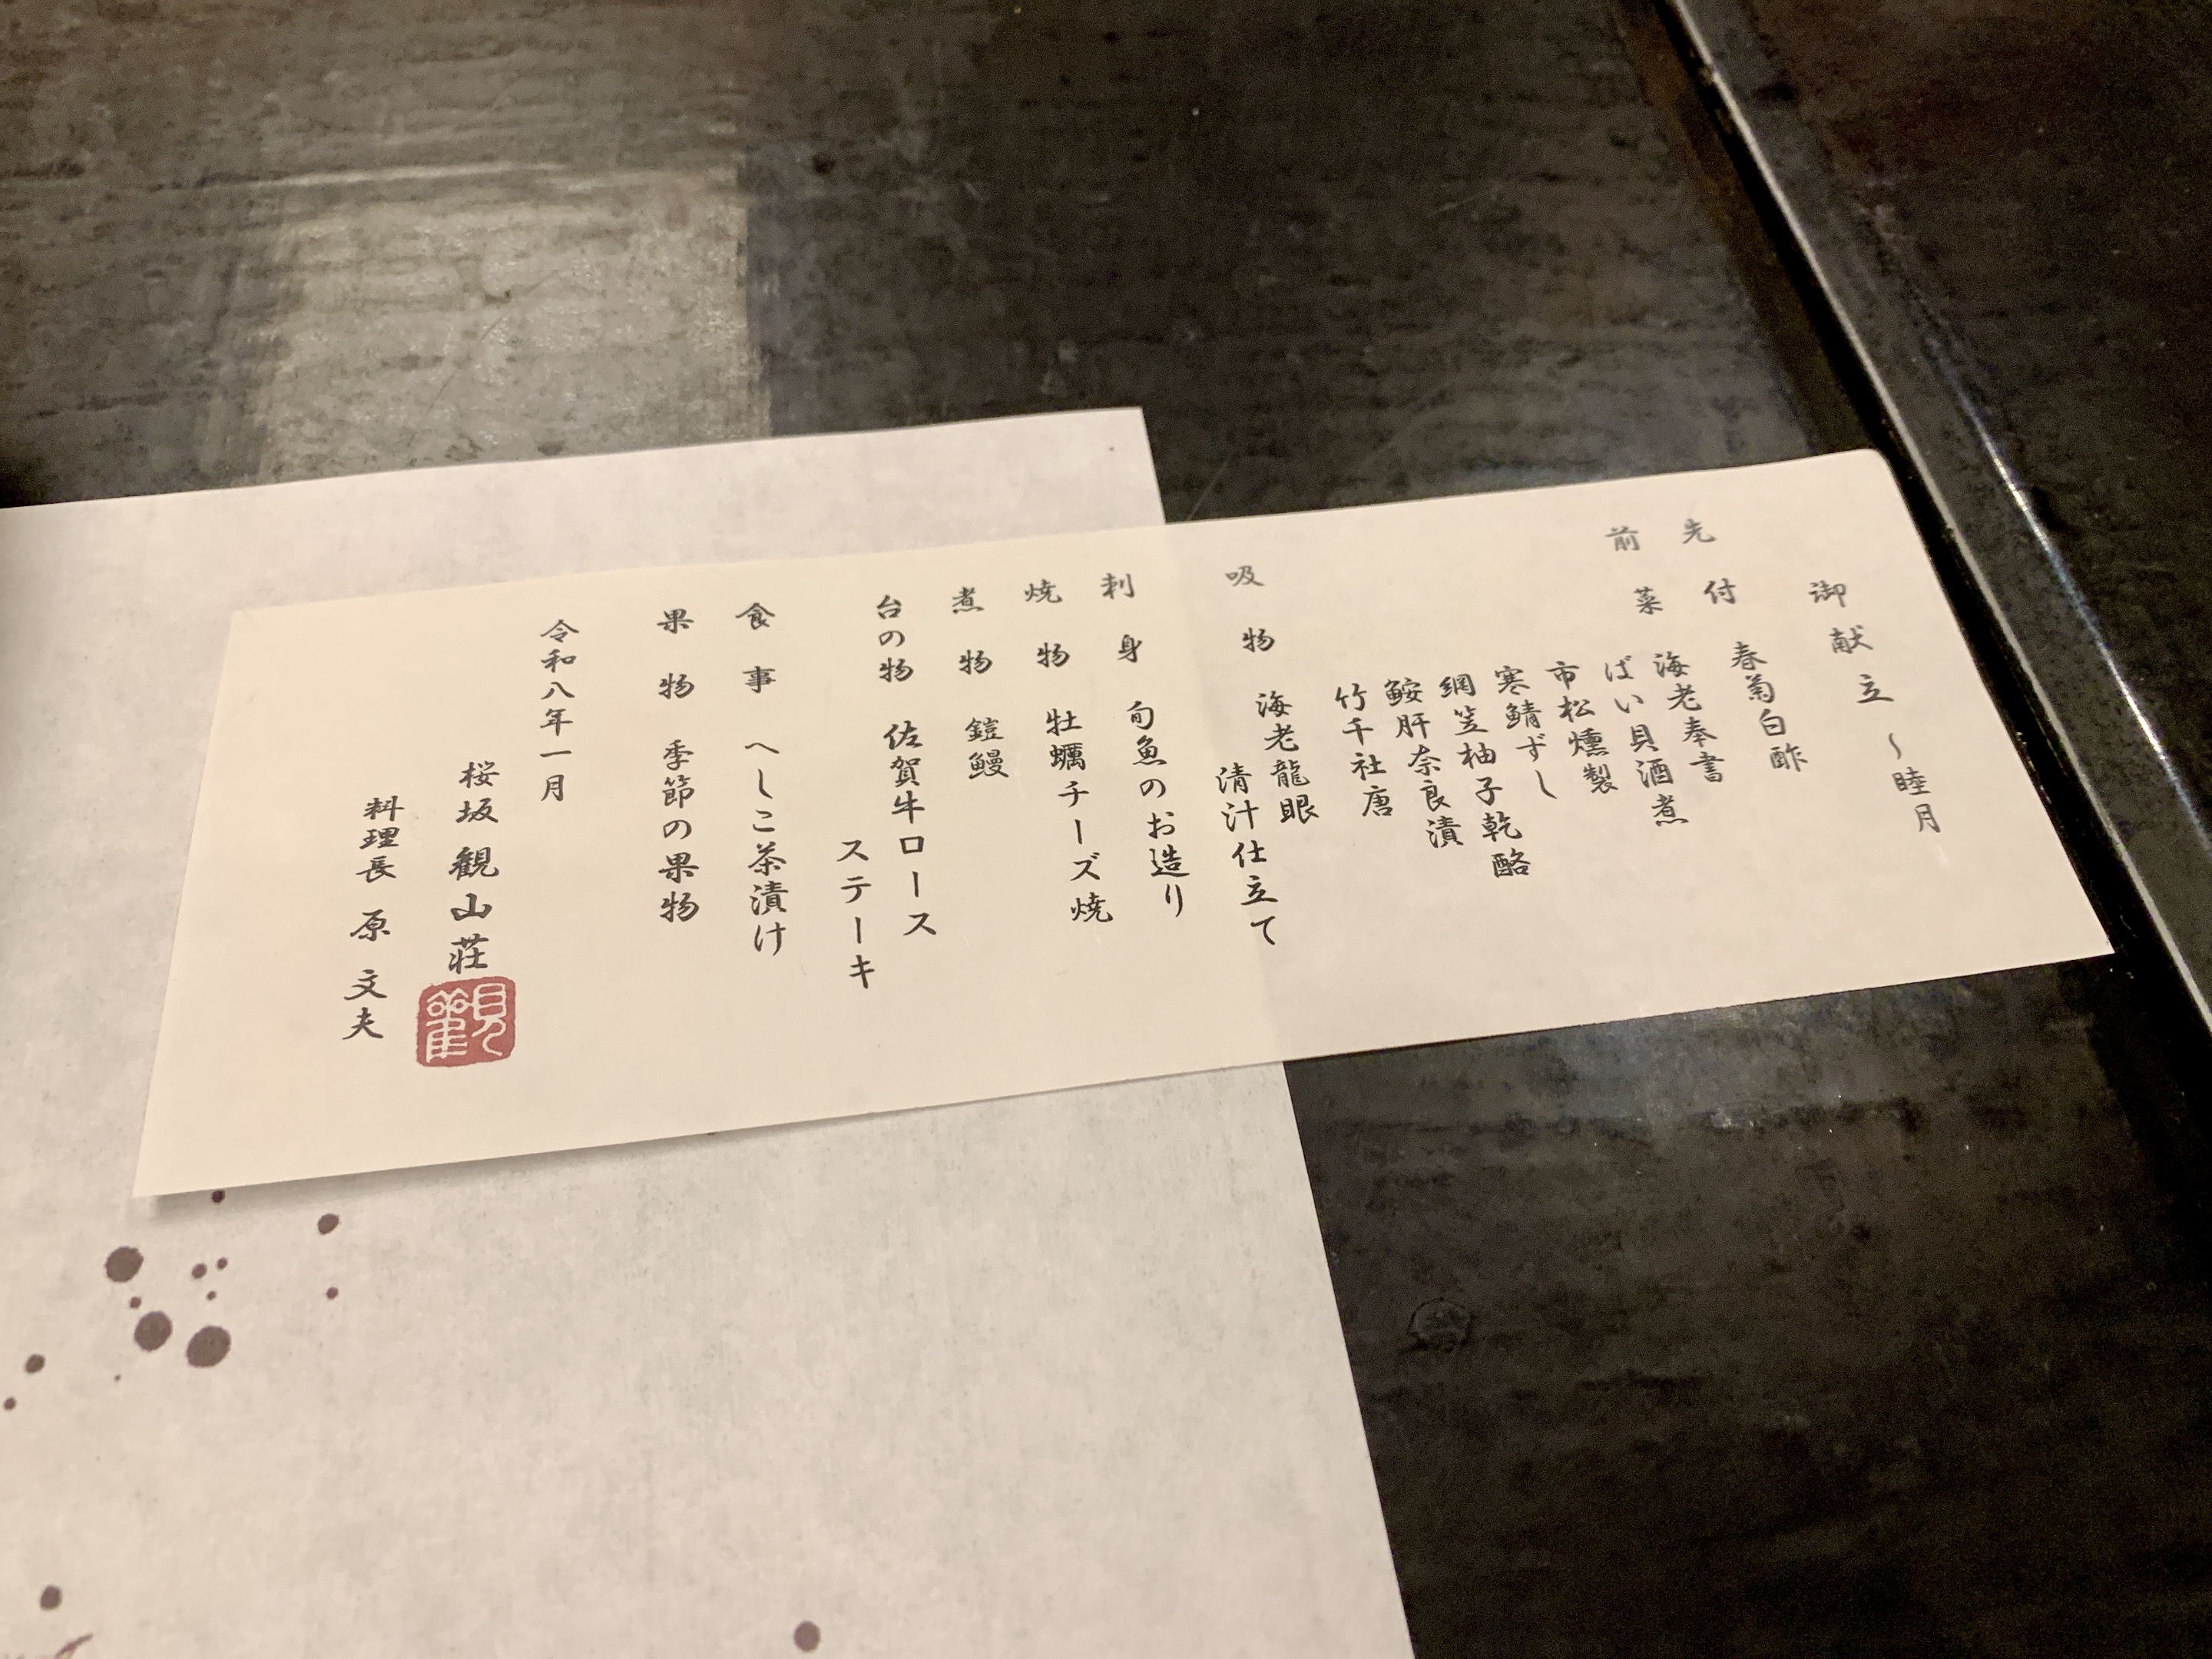 御献立 〜睦月
先付 春菊白酢
前菜 海老奉書
ばい貝酒煮
市松燻製
寒鯖ずし
網笠柚子乾酪
鮟肝奈良漬
竹千社唐
吸物 海老龍眼
清汁仕立て
刺身 旬魚のお造り
焼物 牡蠣チーズ焼
煮物 鎧鰻
台の物 佐賀牛ロース
ステーキ
食事 へしこ茶漬け
果物 季節の果物
令和八年一月
桜坂 観山荘
觀
料理長 原 文夫